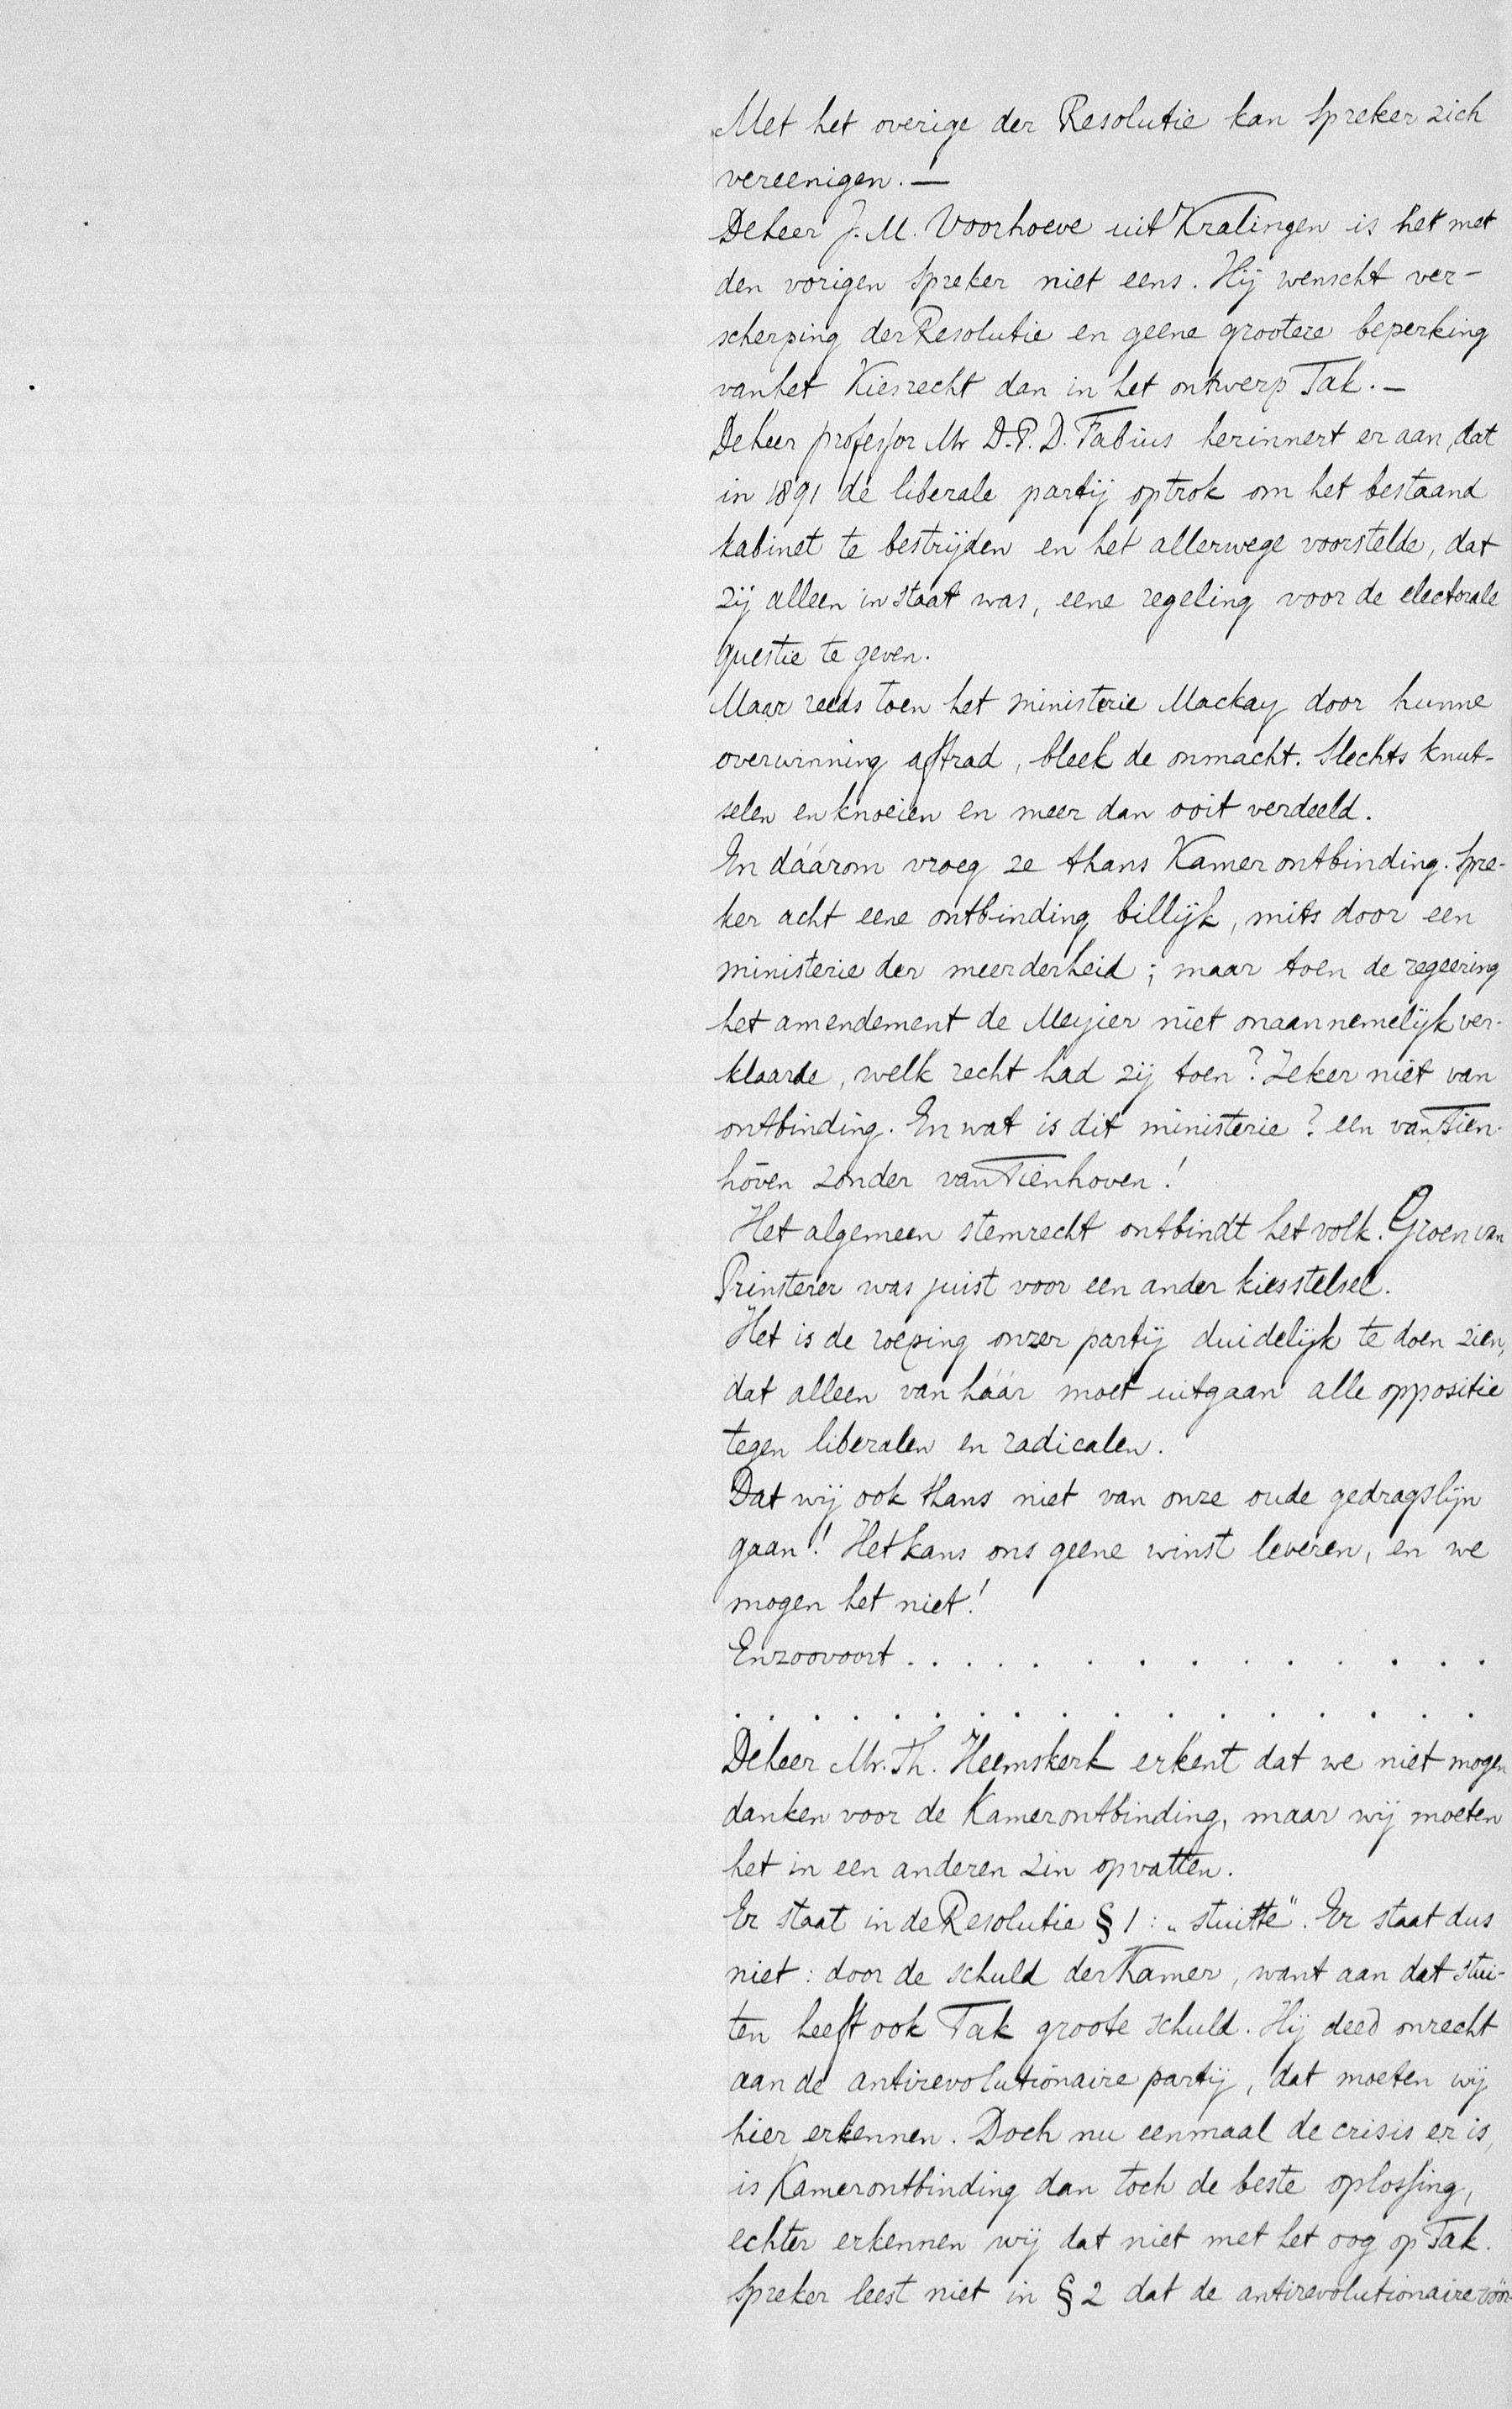 Met het overige der Resolutie kan Spreker zich
vereenigen. —
De heer J. M. Voorhoeve uit Kralingen is het met
den vorigen Spreker niet eens. Hij wenscht ver-
scherping der Resolutie en geene grootere beperking
van het Kiesrecht dan in het ontwerp Tak. —
De heer professor Mr D. P. D. Fabius herinnert er aan, dat
in 1891 de liberale partij optrok om het bestaand
kabinet te bestrijden en het allerwege voorstelde, dat
zij alleen in staat was, eene regeling voor de electorale
questie te geven.
Maar reeds toen het ministerie Mackay door hunne
overwinning aftrad, bleek de onmacht. Slechts knut-
selen en knoeien en meer dan ooit verdeeld.
En dáárom vroeg ze thans Kamerontbinding. Spre-
ker acht eene ontbinding billijk, mits door een
ministerie der meerderheid; maar toen de regeering
het amendement de Meyier niet onaannemelijk ver-
klaarde, welk recht had zij toen? Zeker niet van
ontbinding. En wat is dit ministerie? een van Tien-
hoven zonder van Tienhoven!
Het algemeen stemrecht ontbindt het volk. Groen van
Prinsterer was juist voor een ander kiesstelsel.
Het is de roeping onzer partij duidelijk te doen zien,
dat alleen van háár moet uitgaan alle oppositie
tegen liberalen en radicalen.
Dat wij ook thans niet van onze oude gedragslijn
gaan! Het kans ons geene winst leveren, en we
mogen het niet!
Enzoovoort . . . . . . . . . . . . . .
. . . . . . . . . . . . . . . . . .
De heer Mr. Th. Heemskerk erkent dat we niet mogen
danken voor de Kamerontbinding, maar wij moeten
het in een anderen zin opvatten.
Er staat in de Resolutie § 1: „stuitte". Er staat dus
niet: door de schuld der Kamer, want aan dat stui-
ten heeft ook Tak groote schuld. Hij deed onrecht
aan de antirevolutionaire partij, dat moeten wij
hier erkennen. Doch nu eenmaal de crisis er is,
is Kamerontbinding dan toch de beste oplossing,
echter erkennen wij dat niet met het oog op Tak.
Spreker leest niet in § 2 dat de antirevolutionaire voor-